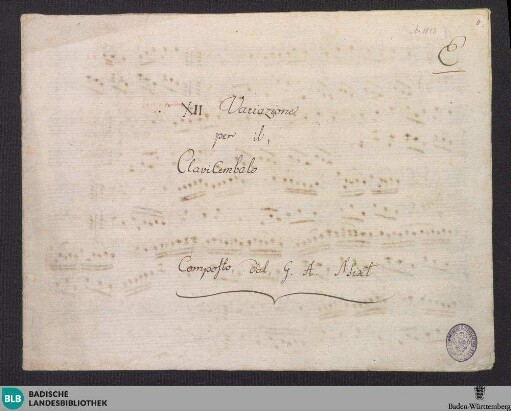 E
XII Variazione
per il
ClaviCembalo
Composto dal G. A
BLB BADISCHE
LANDESBIBLIOTHEK
Baden-Württemberg